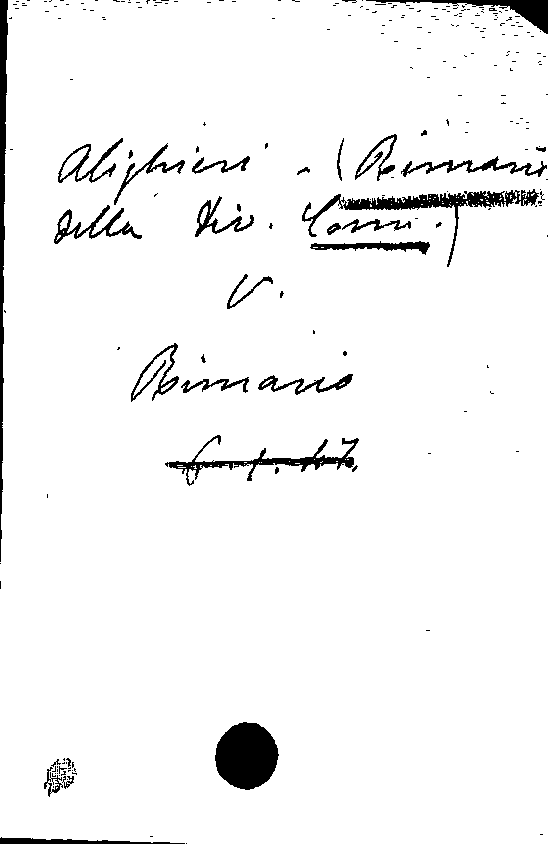 Alighieri - (Rimario
della Div. Com.)
V.
Rimario
6.1.47.